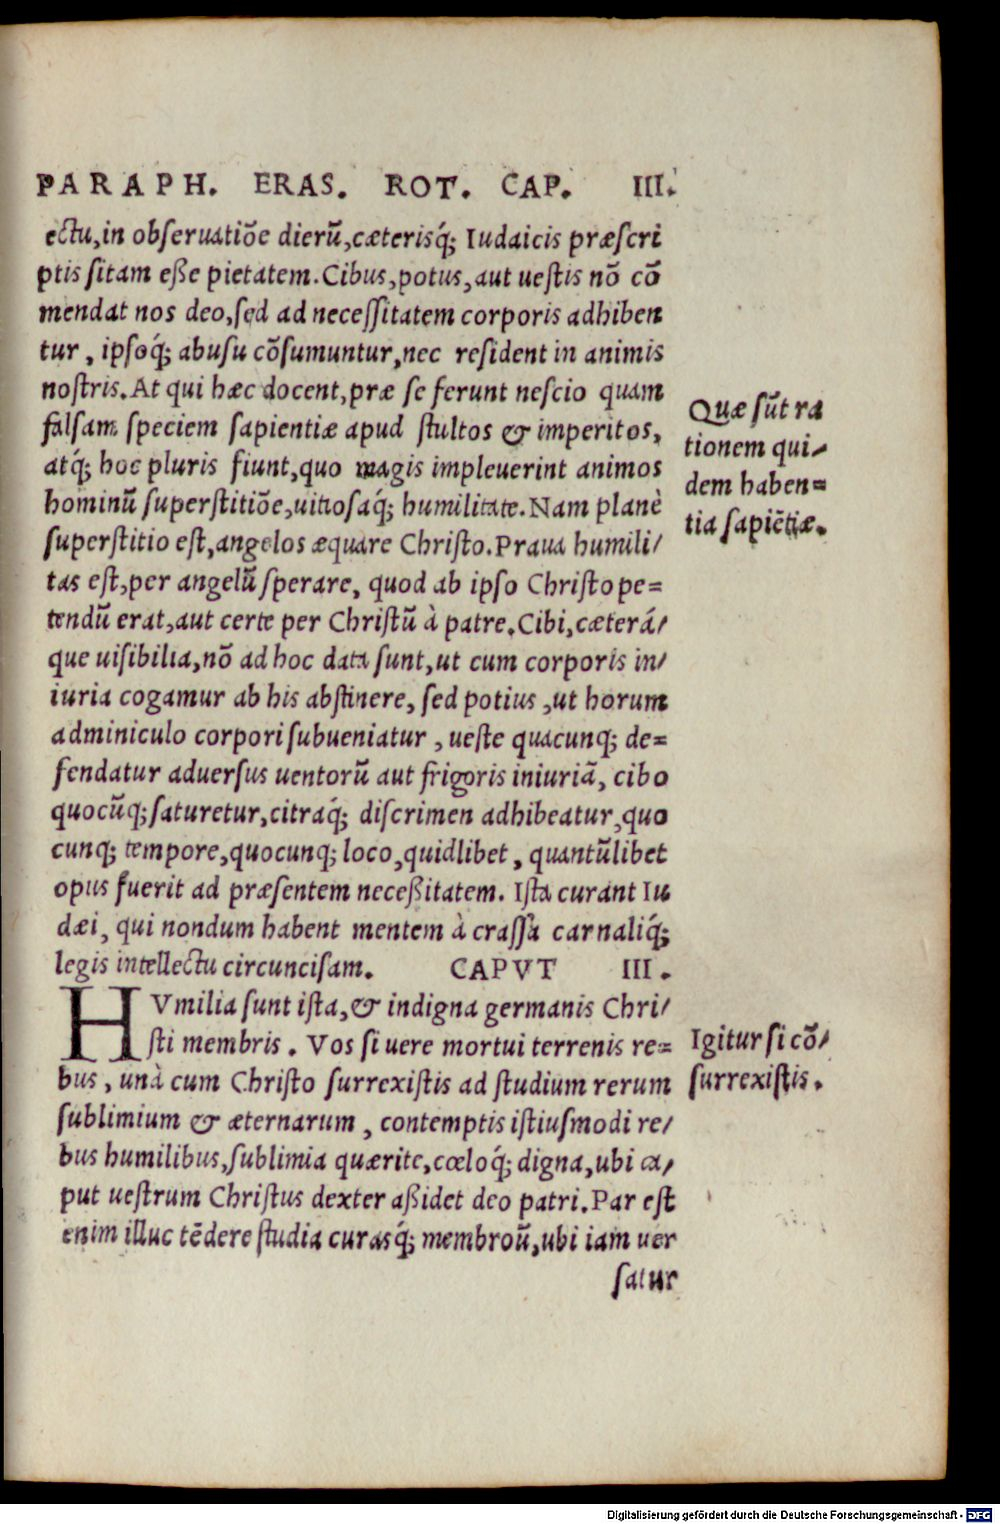 PARAPH. ERAS. ROT. CAP. III.
ectu, in obſeruatiōe dierū, cæterisq́; Iudaicis præſcri
ptis ſitam eſſe pietatem. Cibus, potus, aut ueſtis nō cō
mendat nos deo, ſed ad neceſſitatem corporis adhiben
tur, ipſoq́; abuſu cōſumuntur, nec reſident in animis
noſtris. At qui hæc docent, præ ſe ferunt neſcio quam
falſam ſpeciem ſapientiæ apud ſtultos & imperitos,
atq́; hoc pluris fiunt, quo magis impleuerint animos
hominū ſuperſtitiōe, uitioſaq́; humilitate. Nam planè
ſuperſtitio eſt, angelos æquare Chriſto. Praua humili/
tas eſt, per angelū ſperare, quod ab ipſo Chriſto pe=
tendū erat, aut certe per Chriſtū à patre. Cibi, cæterá/
que uiſibilia, nō ad hoc data ſunt, ut cum corporis in/
iuria cogamur ab his abſtinere, ſed potius, ut horum
adminiculo corpori ſubueniatur, ueſte quacunq; de=
fendatur aduerſus uentorū aut frigoris iniuriā, cibo
quocūq; ſaturetur, citraq́; diſcrimen adhibeatur, quo
cunq; tempore, quocunq; loco, quidlibet, quantūlibet
opus fuerit ad præſentem neceßitatem. Iſta curant Iu
dæi, qui nondum habent mentem à craſſa carnaliq́;
legis intellectu circunciſam. CAPVT III.
HVmilia ſunt iſta, & indigna germanis Chri/
ſti membris. Vos ſi uere mortui terrenis re=
bus, unà cum Chriſto ſurrexiſtis ad ſtudium rerum
ſublimium & æternarum, contemptis iſtiuſmodi re/
bus humilibus, ſublimia quærite, cœloq́; digna, ubi ca/
put ueſtrum Chriſtus dexter aßidet deo patri. Par eſt
enim illuc tēdere ſtudia curasq́; membroū, ubi iam uer
ſatur
Quæ ſūt ra
tionem qui/
dem haben=
tia ſapiētiæ.
Igitur ſi cō/
ſurrexiſtis.
Digitalisierung gefördert durch die Deutsche Forschungsgemeinschaft - DFG